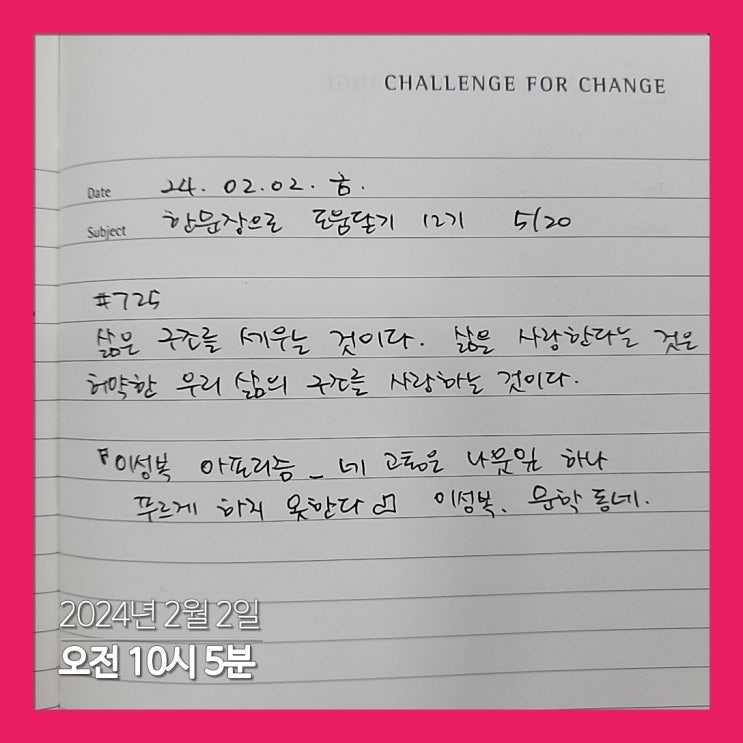 CHALLENGE FOR CHANGE
Date 24. 02. 02. 금.
Subject 한문장으로 도움닫기 12기 5/20
#725
삶은 구조를 세우는 것이다. 삶을 사랑한다는 것은
허약한 우리 삶의 구조를 사랑하는 것이다.
『이성복 아포리즘_네 고통은 나뭇잎 하나
푸르게 하지 못한다』 이성복, 문학동네.
2024년 2월 2일
오전 10시 5분